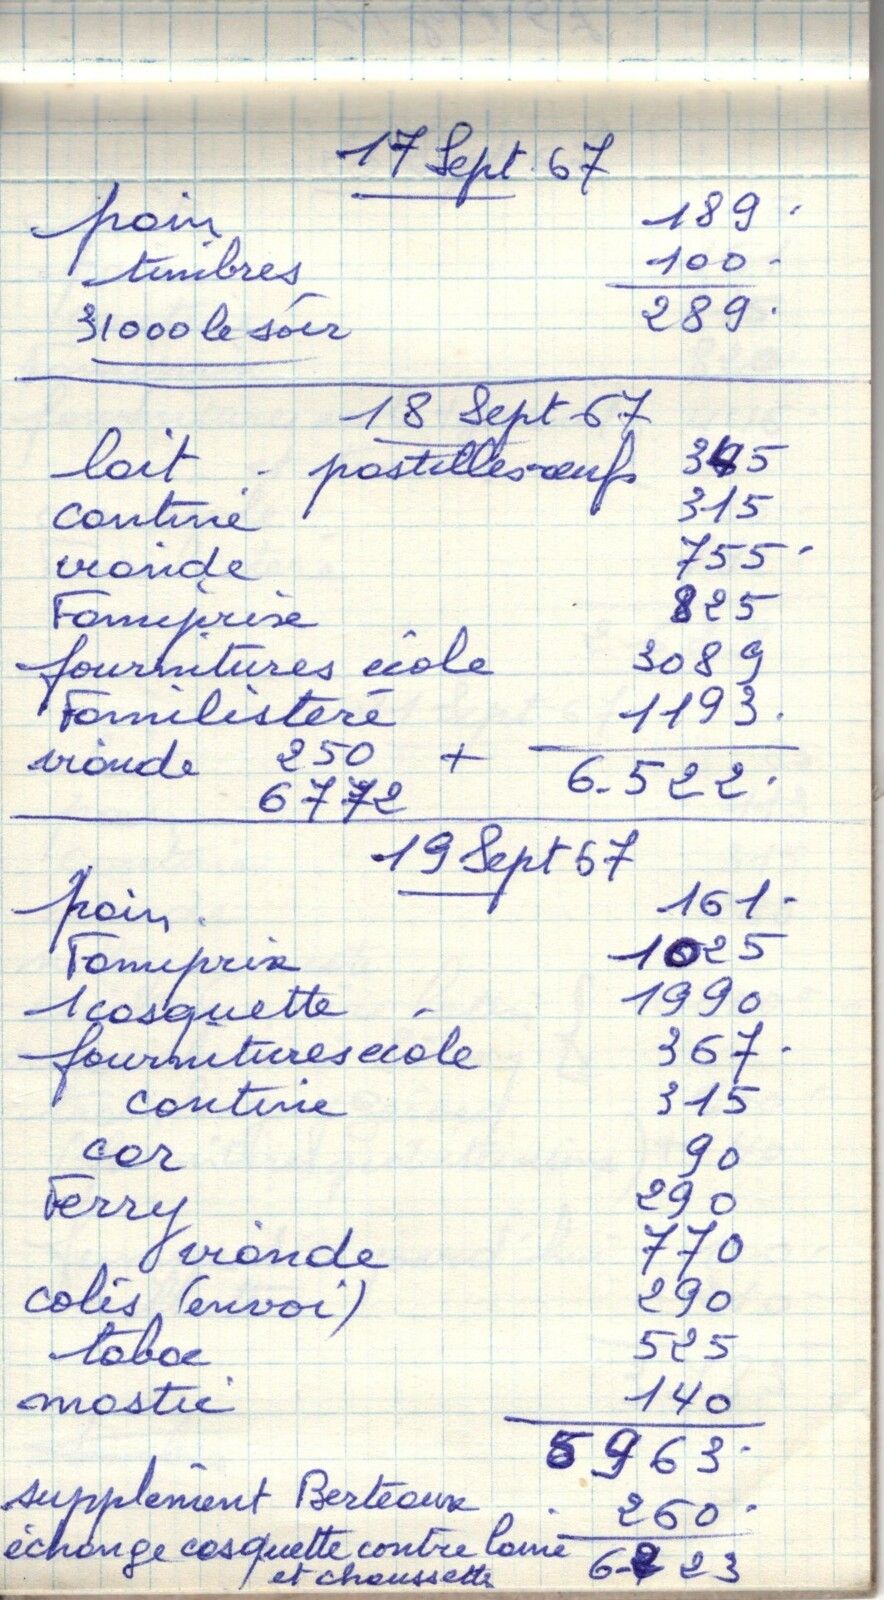 17 Sept. 67
pain 189.
timbres 100.
31000 le soir 289.
18 Sept 67
lait - pastilles œufs 345
cantine 315
viande 755.
Famiprix 825
fournitures école 3089
Familistère 1193.
viande 250 + 6.522.
6772
19 Sept 67
pain. 161.
Famiprix 1025
1 casquette 1990
fournitures école 367.
cantine 315
car 90
Ferry 290
viande 770
colis (envoi) 290
tabac 525
mastic 140
5963.
supplément Berteaux. 260.
échange casquette contre laine 6.223
et chaussette